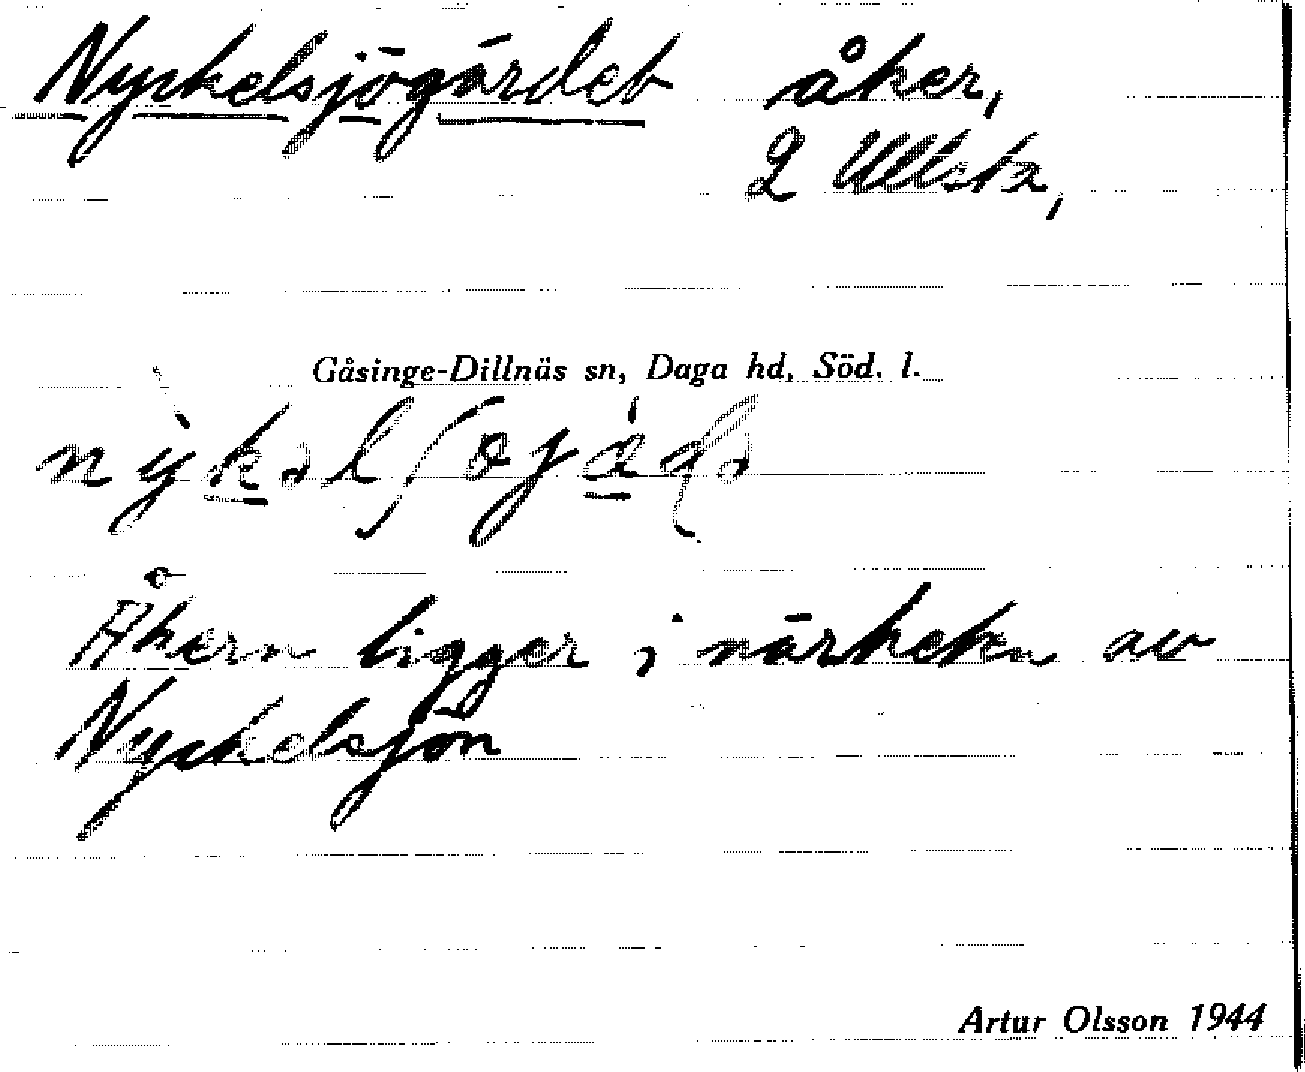 Nyckelsjögärdet åker,
2 Ullsta,
Gåsinge-Dillnäs sn, Daga hd, Söd. l.
Åkern ligger i närheten av
Nyckelsjön
Artur Olsson 1944